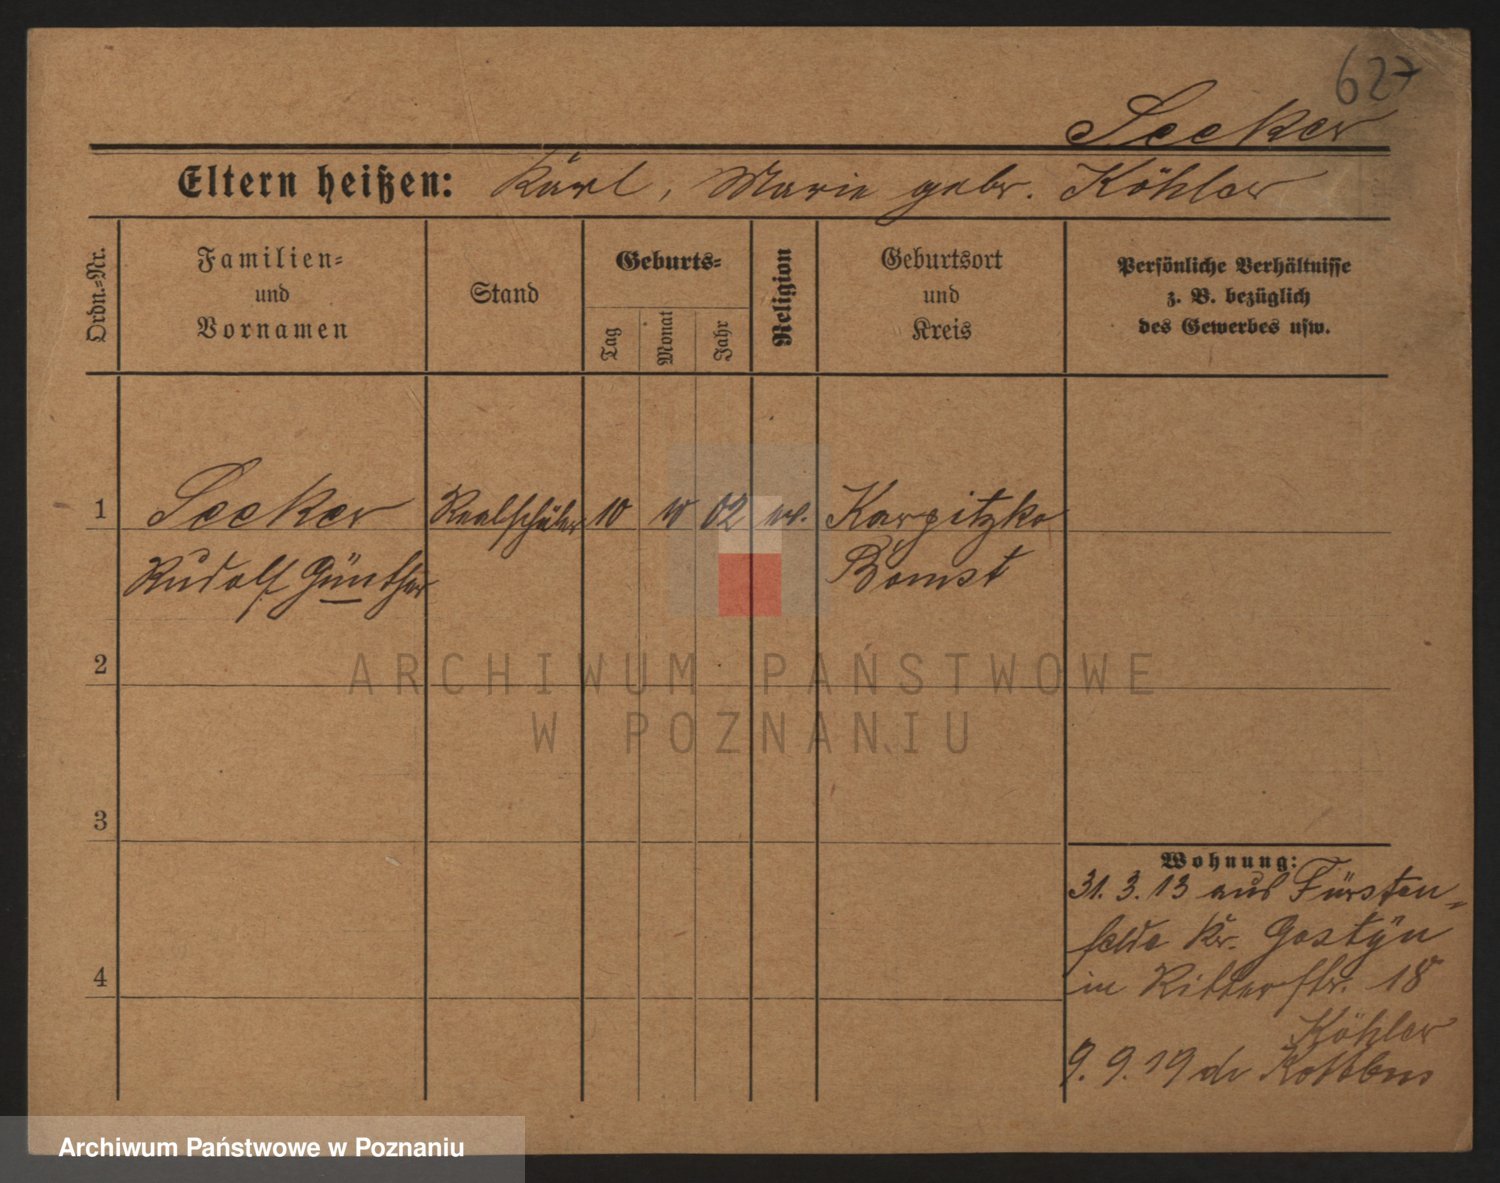 627
Seeker
Eltern heißen: Karl, Marie gebr. Köhler
Ordn.-Nr.
Familien- und Vornamen
Stand
Geburts-
Tag
Monat
Jahr
Religion
Geburtsort und Kreis
Persönliche Verhältnisse
z. B. bezüglich
des Gewerbes usw.
1 Seeker Realschüler 10 10 02 ev. Karpitzko
Rudolf Günther Bomst
ARCHIWUM PAŃSTWOWE
W POZNANIU
2
3
4
Wohnung:
31. 3. 13 aus Fürsten-
felde Kr. Gostyn
in Ritterstr. 18
Köhler
9. 9. 19 Kottbus
Archiwum Państwowe w Poznaniu